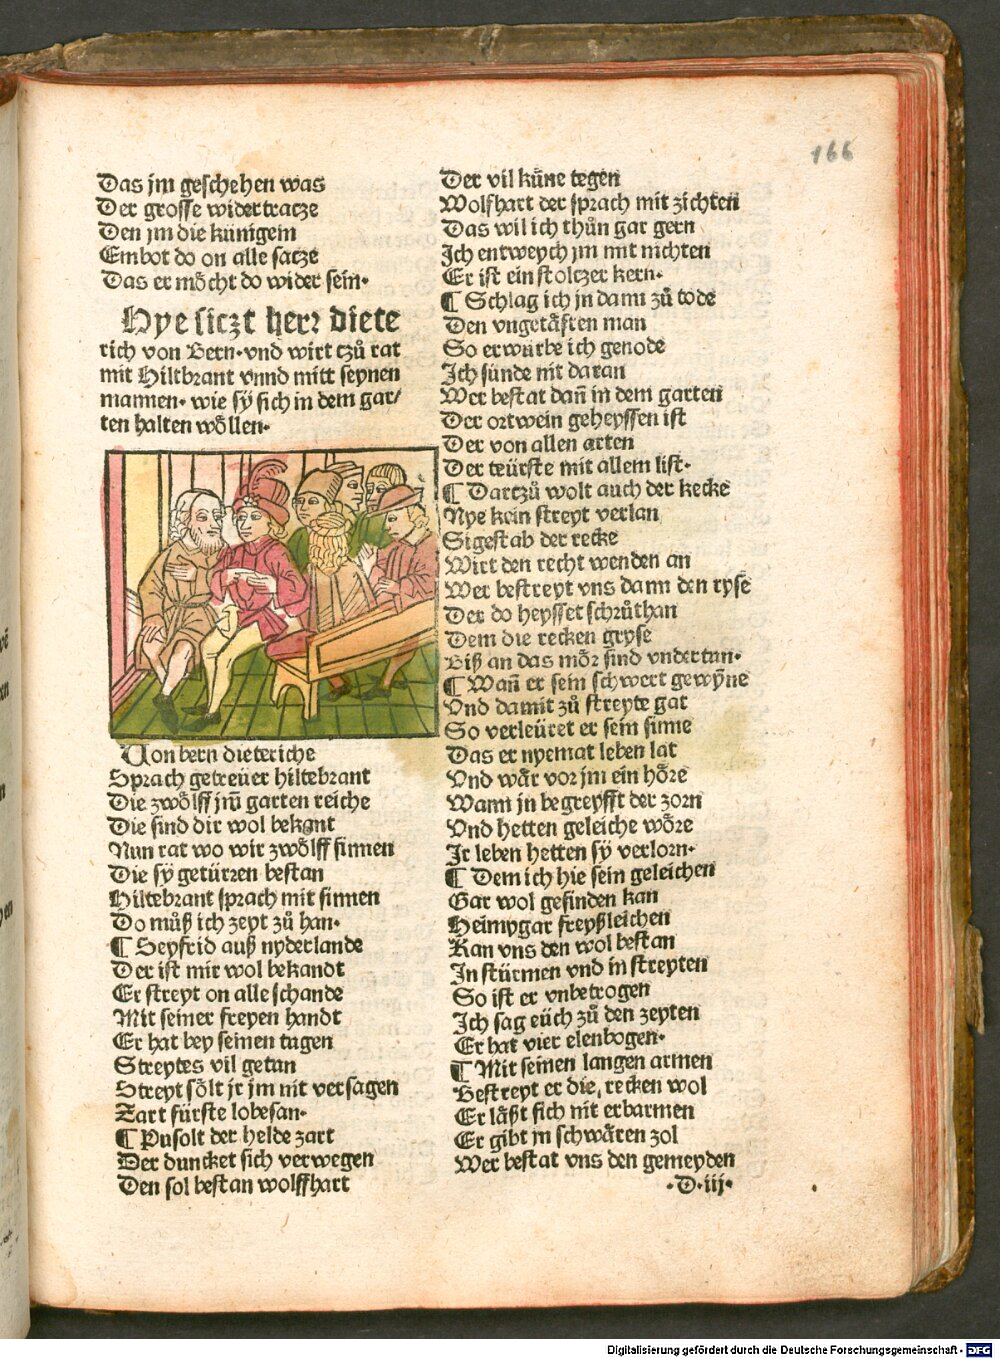 166
Das jm geschehen was
Der grosse widertratze
Den jm die künigein
Embot do on alle satze
Das er möcht do wider sein·
Hye siczt herr diete
rich von Bern·vnd wirt tzů rat
mit Hiltbrant vnnd mitt seynen
mannen· wie sÿ sich in dem gar/
ten halten wöllen·
Von bern dieteriche
Sprach getreüer hiltebrant
Die zwölff jm garten reiche
Die sind dir wol bekant
Nun rat wo wir zwölff finnen
Die sÿ getürren bestan
Hiltebrant sprach mit sinnen
Do můß ich zeyt zů han·
¶ Seyfrid auß nyderlande
Der ist mir wol bekandt
Er streyt on alle schande
Mit seiner freyen handt
Er hat bey seinen tagen
Streytes vil getan
Streyt sölt jr jm nit versagen
Zart fürste lobesan·
¶ Pusolt der helde zart
Der duncket sich verwegen
Den sol bestan wolffhart
Der vil küne tegen
Wolfhart der sprach mit zichten
Das wil ich thůn gar gern
Ich entweych jm mit nichten
Er ist ein stolczer kern·
¶ Schlag ich jn dann zů tode
Den vngetäften man
So erwurbe ich genode
Ich sünde nit daran
Wer bestat dañ in dem garten
Der ortwein geheyssen ist
Der von allen arten
Der teürste mit allem list·
¶ Dartzů wolt auch der kecke
Nye kein streyt verlan
Sigestab der recke
Wirt den recht wenden an
Wer bestreyt vns dann den ryse
Der do heysset schrůthan
Dem die recken gryse
Biß an das mör sind vndertan·
¶ Wañ er sein schwert gewÿne
Vnd damit zů streyte gat
So verleüret er sein sinne
Das er nyemat leben lat
Vnd wär vor jm ein höre
Wann jn begreyfft der zorn
Vnd hetten geleiche wöre
Ir leben hetten sÿ verlorn·
¶ Dem ich hie sein geleichen
Gar wol gefinden kan
Heimygar freyßleichen
Kan vns den wol bestan
In stürmen vnd in streyten
So ist er vnbetrogen
Ich sag eüch zů den zeyten
Er hat vier elenbogen·
¶ Mit seinen langen armen
Bestreyt er die recken wol
Er läßt sich nit erbarmen
Er gibt jn schwären zol
Wer bestat vns den gemeyden
·D·iij·
Digitalisierung gefördert durch die Deutsche Forschungsgemeinschaft - DFG